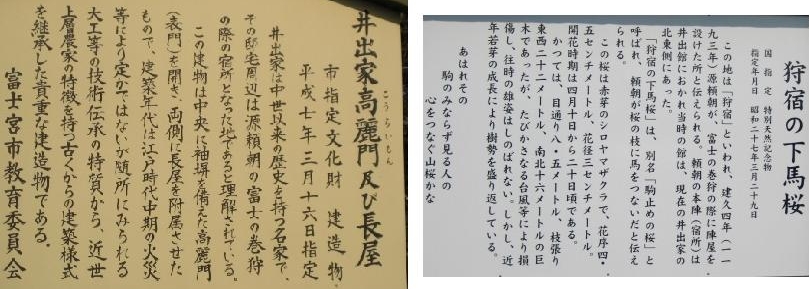 井出家高麗門及び長屋
こうらいもん
市指定文化財 建造物
平成七年三月十六日指定
井出家は中世以来の歴史を持つ名家で、
その邸宅周辺は源頼朝の富士の巻狩
の際の宿所となった地であると理解されている。
この建物は中央に袖塀を備えた高麗門
(表門)を開き、両側に長屋を附属させた
もので、建築年代は江戸時代中期の火災
等により定かではないが随所にみられる
大工等の技術伝承の特質から、近世
上層農家の特徴を持つ古くからの建築様式
を継承した貴重な建造物である。
富士宮市教育委員会
狩宿の下馬桜
国指定 特別天然記念物
指定年月日 昭和二十七年三月二十九日
この地は「狩宿」といわれ、建久四年(一一
九三年)源頼朝が、富士の巻狩の際に陣屋を
設けた所と伝えられる。頼朝の本陣(宿所)は
井出館におかれ当時の館は、現在の井出家の
北東側にあった。
「狩宿の下馬桜」は、別名「駒止めの桜」と
呼ばれ、頼朝が桜の枝に馬をつないだと伝え
られる。
この桜は赤芽のシロヤマザクラで、花序四・
五センチメートル、花径三センチメートル。
開花時期は四月十日から二十日頃である。
かつては、目通り八・五メートル、枝張り
東西二十二メートル、南北十六メートルの巨
木であったが、たびかさなる台風等により損
傷し、往時の雄姿はしのばれない。しかし、近
年若芽の成長により樹勢を盛り返している。
あはれその
駒のみならず見る人の
心をつなぐ山桜かな